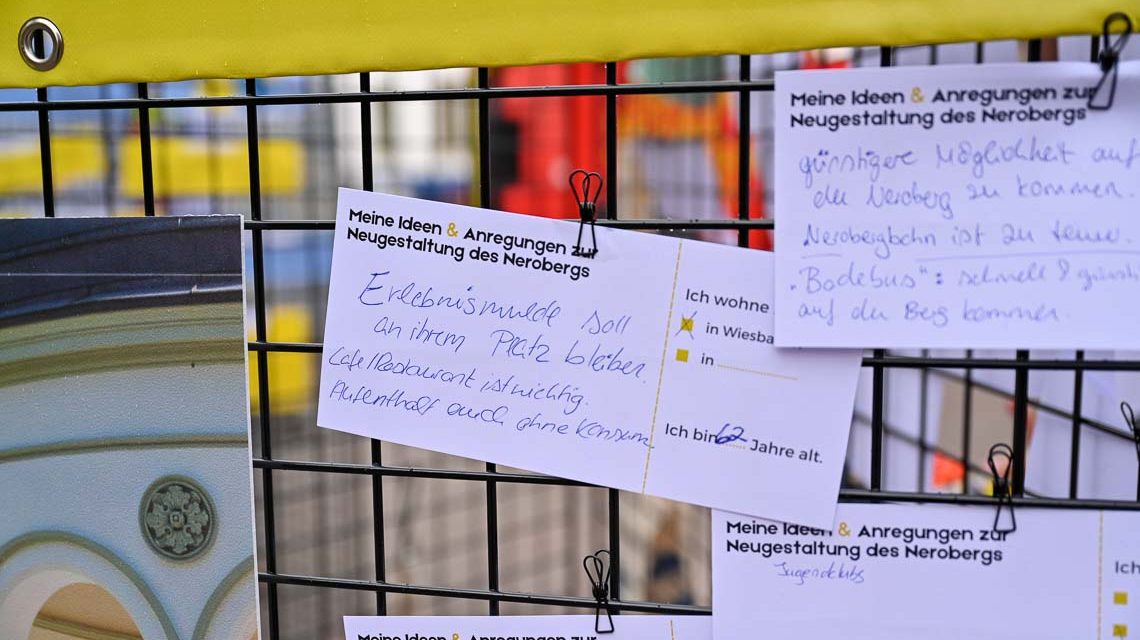 Meine Ideen & Anregungen zur
Neugestaltung des Nerobergs
günstigere Möglichkeit auf
den Neroberg zu kommen.
Nerobergbahn ist zu teuer.
"Bodebus": schnell & günsti
auf den Berg kommen.
Meine Ideen & Anregungen zur
Neugestaltung des Nerobergs
Erlebnismulde soll
an ihrem Platz bleiben.
Cafe/Restaurant ist wichtig.
Aufenthalt auch ohne Konsum
Ich wohne
in Wiesba
in
Ich bin 62 Jahre alt.
Meine Ideen & Anregungen zur
Neugestaltung des Nerobergs
Jugendclubs
Ich
Meine Ideen & Anregungen zur